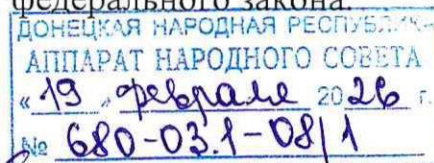 федерального закона.
ДОНЕЦКАЯ НАРОДНАЯ РЕСПУБЛИКА
АППАРАТ НАРОДНОГО СОВЕТА
«19» февраля 2026 г.
№ 680-03.1-08/1